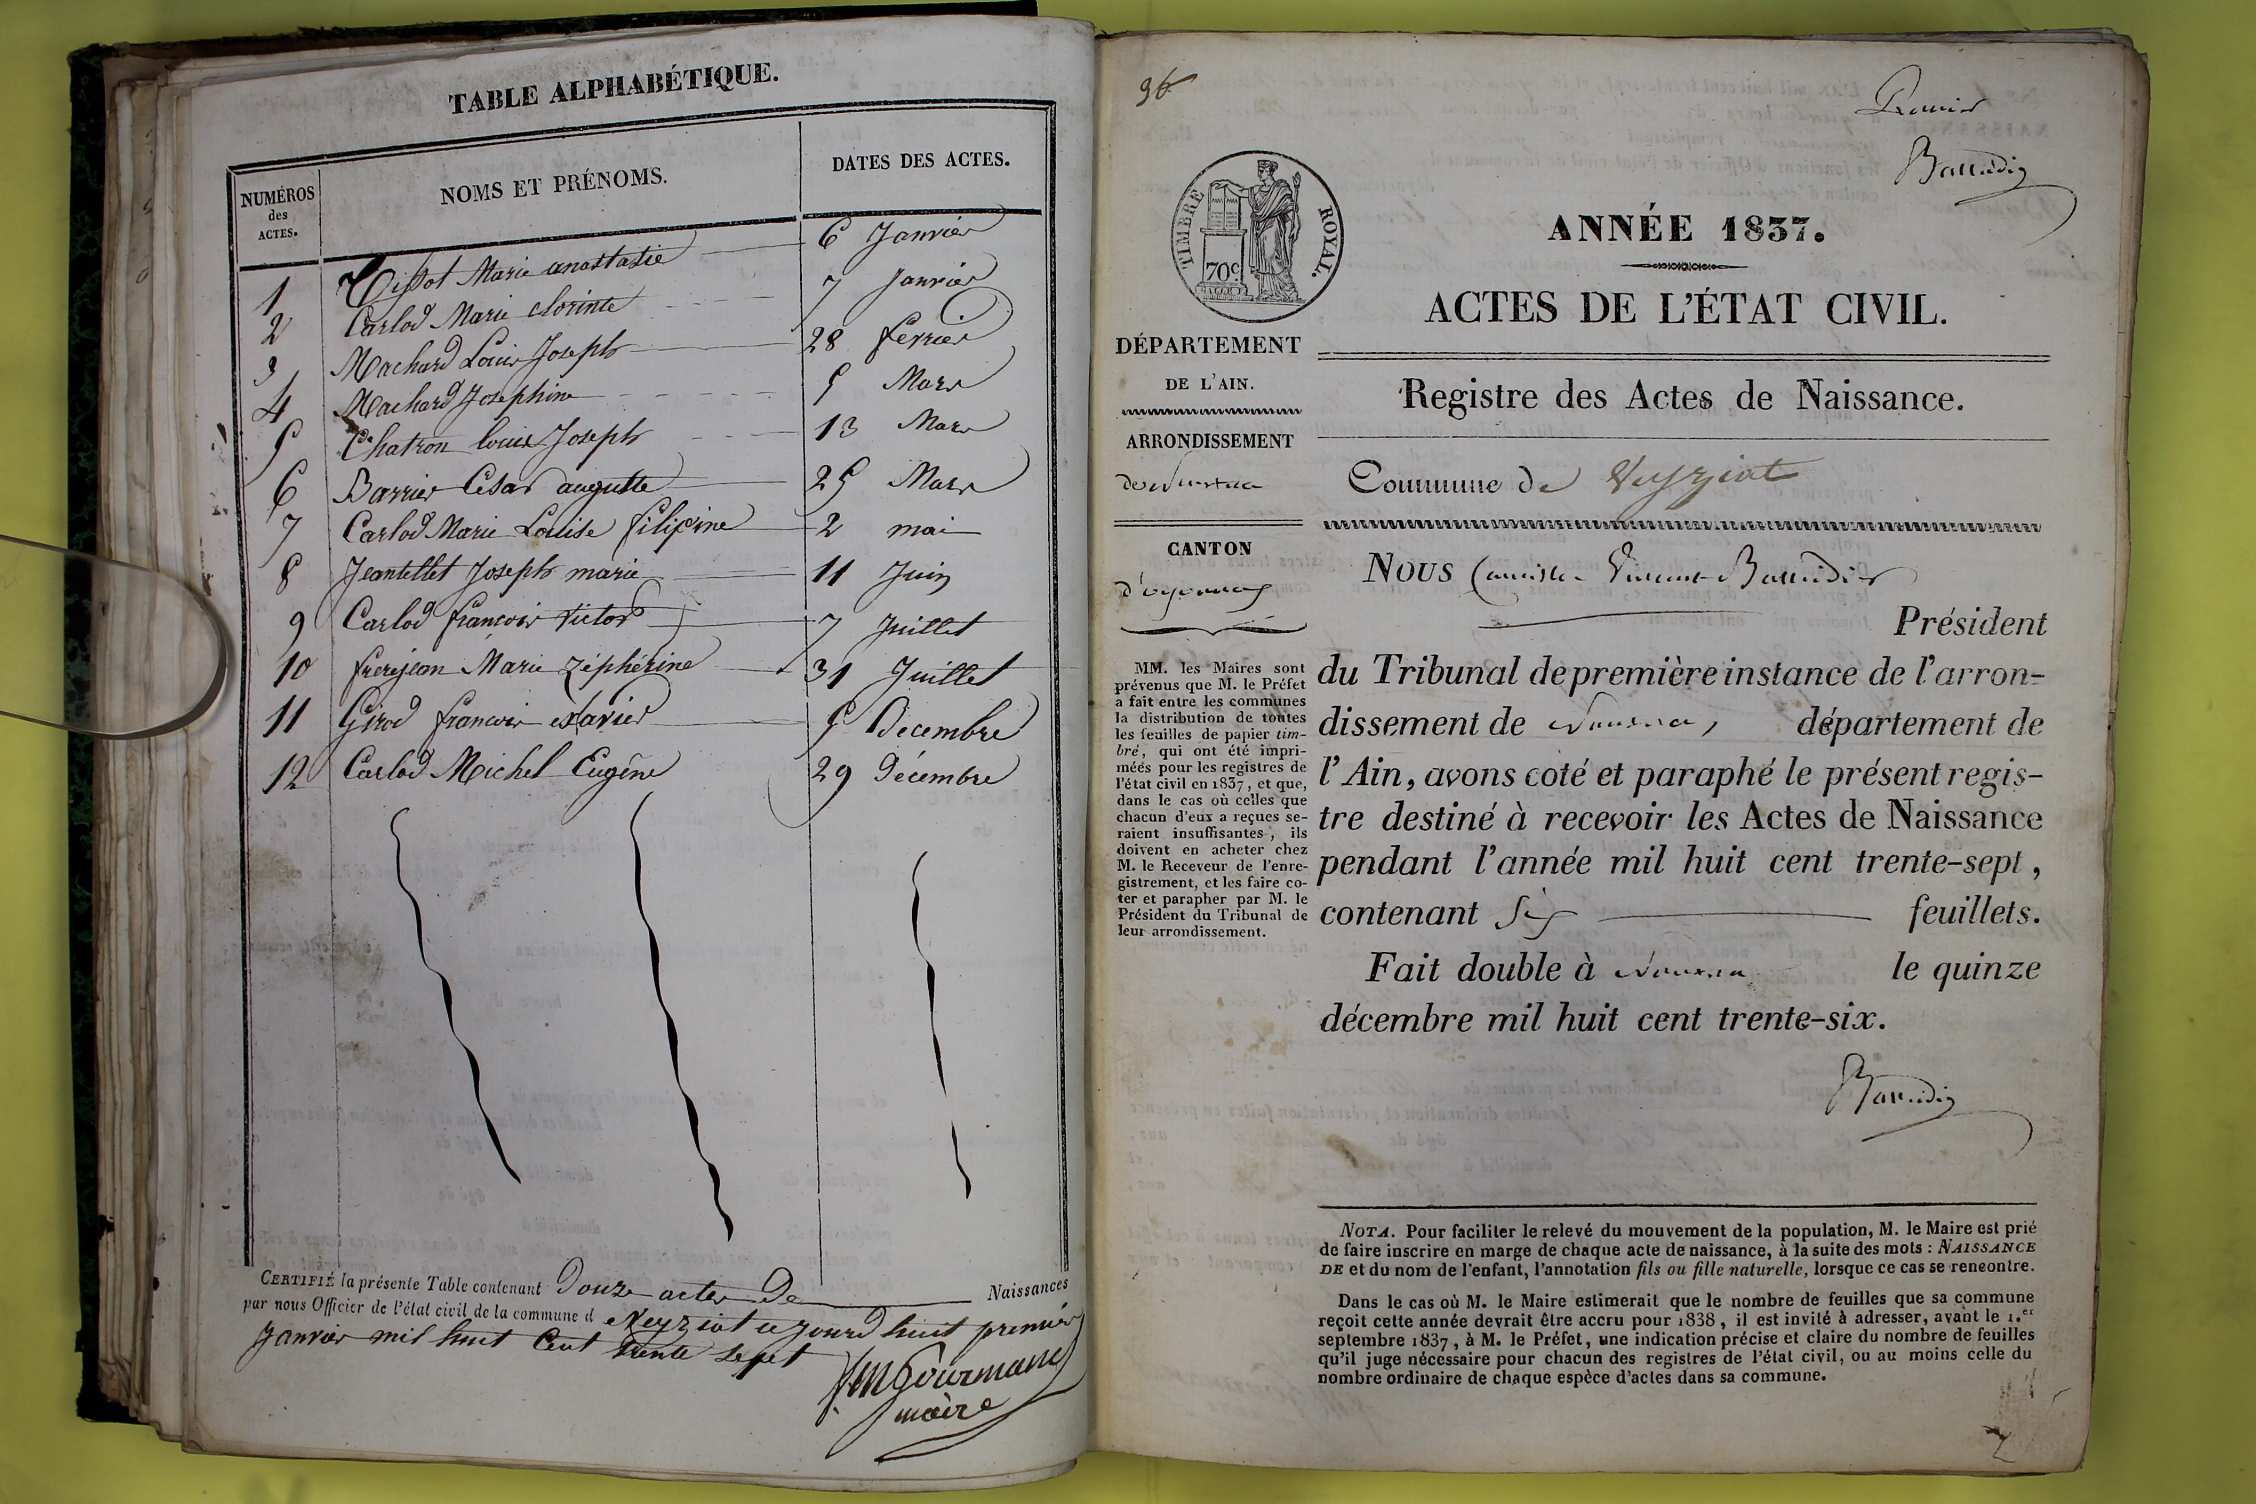 TABLE ALPHABÉTIQUE.
NUMÉROS des ACTES. NOMS ET PRÉNOMS. DATES DES ACTES.
1 Tissot Marie anastasie 6 Janvier
2 Carlod Marie clorinte 7 Janvier
3 Machard Louis Joseph 28 fevrier
4 Machard Josephine 5 Mars
5 Chatron louis Joseph 13 Mars
6 Barrier César auguste 25 Mars
7 Carlod Marie Louise filipine 2 mai
8 Jeantellet Joseph marie 11 Juin
9 Carlod françois victor 7 Juillet
10 frerejean Marie zéphérine 31 Juillet
11 Girod francois exavier 5 Decembre
12 Carlod Michel Eugêne 29 Décembre
CERTIFIÉ la présente Table contenant Douze actes De Naissances
par nous Officier de l'état civil de la commune d Veyziat ce jourd huit premier
Janvier mil huit Cent trente sept
Gourmand
maire
96
Premier
Baudin
TIMBRE ROYAL.
70c
ANNÉE 1837.
ACTES DE L'ÉTAT CIVIL.
DÉPARTEMENT
DE L'AIN.
ARRONDISSEMENT
de Nantua
CANTON
d'oyonnax
MM. les Maires sont
prévenus que M. le Préfet
a fait entre les communes
la distribution de toutes
les feuilles de papier tim-
bré, qui ont été impri-
méés pour les registres de
l'état civil en 1837, et que,
dans le cas où celles que
chacun d'eux a reçues se-
raient insuffisantes, ils
doivent en acheter chez
M. le Receveur de l'enre-
gistrement, et les faire co-
ter et parapher par M. le
Président du Tribunal de
leur arrondissement.
Registre des Actes de Naissance.
Commune de Veyziat
NOUS Camille Vincent
Président
du Tribunal de première instance de l'arron-
dissement de Nantua, département de
l'Ain, avons coté et paraphé le présent regis-
tre destiné à recevoir les Actes de Naissance
pendant l'année mil huit cent trente-sept,
contenant Six feuillets.
Fait double à Nantua le quinze
décembre mil huit cent trente-six.
NOTA. Pour faciliter le relevé du mouvement de la population, M. le Maire est prié
de faire inscrire en marge de chaque acte de naissance, à la suite des mots : NAISSANCE
DE et du nom de l'enfant, l'annotation fils ou fille naturelle, lorsque ce cas se rencontre.
Dans le cas où M. le Maire estimerait que le nombre de feuilles que sa commune
reçoit cette année devrait être accru pour 1838, il est invité à adresser, avant le 1.er
septembre 1837, à M. le Préfet, une indication précise et claire du nombre de feuilles
qu'il juge nécessaire pour chacun des registres de l'état civil, ou au moins celle du
nombre ordinaire de chaque espèce d'actes dans sa commune.